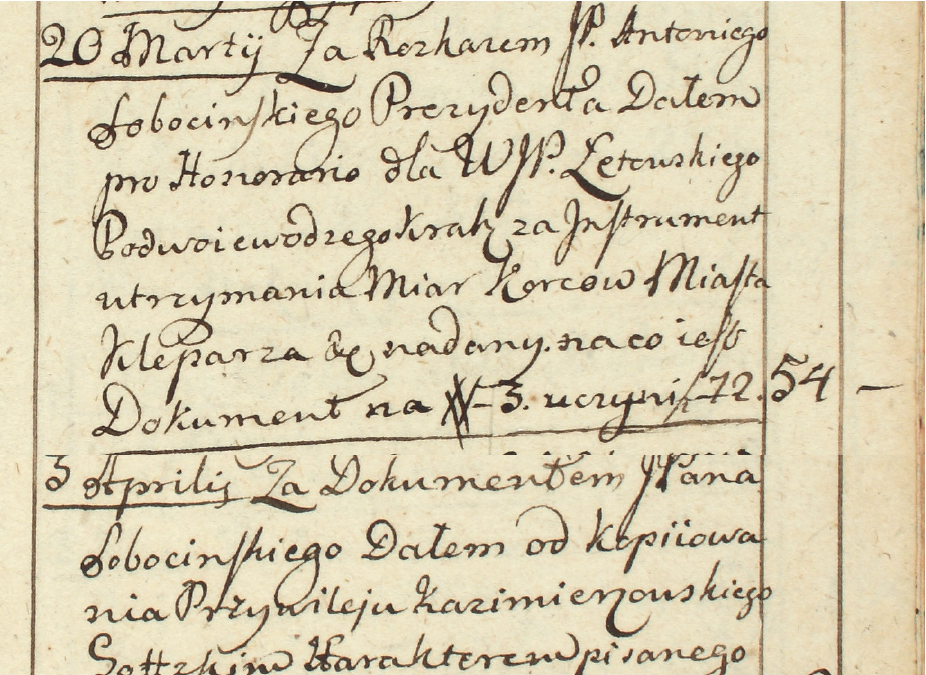 20 Martij Za Rozkazem JP. Antoniego
Łobocinskiego Prezydenta Dałem
pro Honorario dla WJP. Łętowskiego
Podwoiewodzego Krak za Instrument
utrzymania Miar Korcow Miasta
Kleparza &c nadany. na co iest
Dokument na 3. uczyni 72. 54 —
3 Aprilis Za Dokumentem JPana
Łobocinskiego Dałem od kopiiowa
nia Przywileju Kazimierzowskiego
Gottzkim Harakterem pisanego